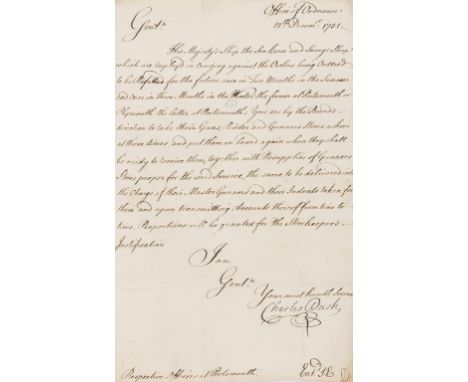 Office of Ordnance
12th Decemr. 1751.
Gentn.
His Majesty's Ship the Sea Horse and Savage Sloop
which are employed in cruizing against the Owlers being Ordered
to be Refitted for the future once in Two Months in the Summer
and once in three Months in the Winter, the former at Portsmouth or
Plymouth the latter at Portsmouth; You are by the Board's
direction to take their Guns, Powder and Gunners Stores ashore
at those times and put them on board again when they shall
be ready to receive them, together with Resupplies of Gunners
Stores proper for the said Service, the same to be delivered into
the Charge of their Master Gunners and their Indents taken for
them and upon transmitting Accounts thereof from time to
time Proportions will be granted for the Storekeeper's
Justification
I am
Gentn.
Your most humble Servant
Charles Bush
Respective Officers at Portsmouth
Entd.